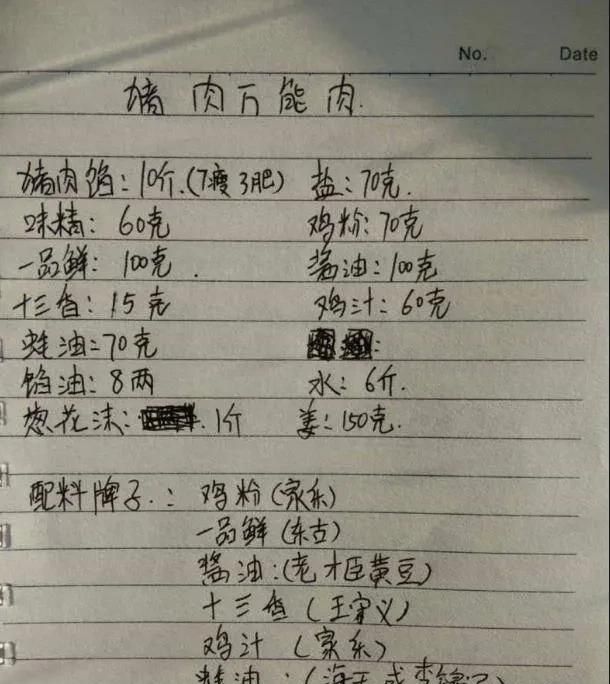 No. Date
猪肉万能肉.
猪肉馅:10斤.(7瘦3肥) 盐:70克.
味精:60克 鸡粉:70克
一品鲜:100克. 酱油:100克
十三香:15克 鸡汁:60克
蚝油:70克
馅油:8两 水:6斤.
葱花沫: 1斤 姜:150克.
配料牌子.:鸡粉(家乐)
一品鲜(东古)
酱油:(老才臣黄豆)
十三香(王守义)
鸡汁(家乐)
蚝油:(海天或李锦记)